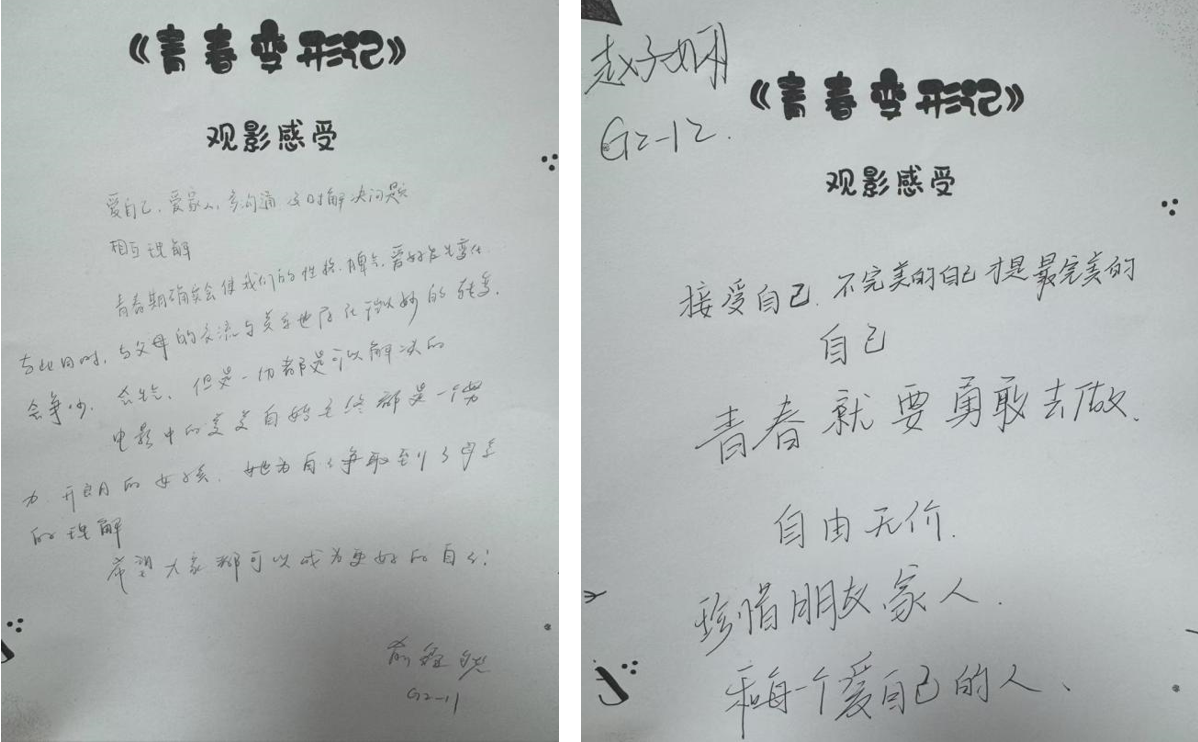 《青春变形记》
观影感受
爱自己、爱家人,多沟通,及时解决问题
相互理解
青春期确实会使我们的性格、脾气、爱好发生变化
与此同时,与父母的交流与关系也存在微妙的转变。
会争吵、会生气、但是一切都是可以解决的
电影中的美美自始至终都是一个努
力、开朗的女孩,她为自己争取到了家人
的理解
希望大家都可以成为更好的自己!
G2-11
赵子娴
G2-12.
《青春变形记》
观影感受
接受自己,不完美的自己才是最完美的
自己
青春就要勇敢去做、
自由无价.
珍惜朋友、家人.
和每一个爱自己的人、